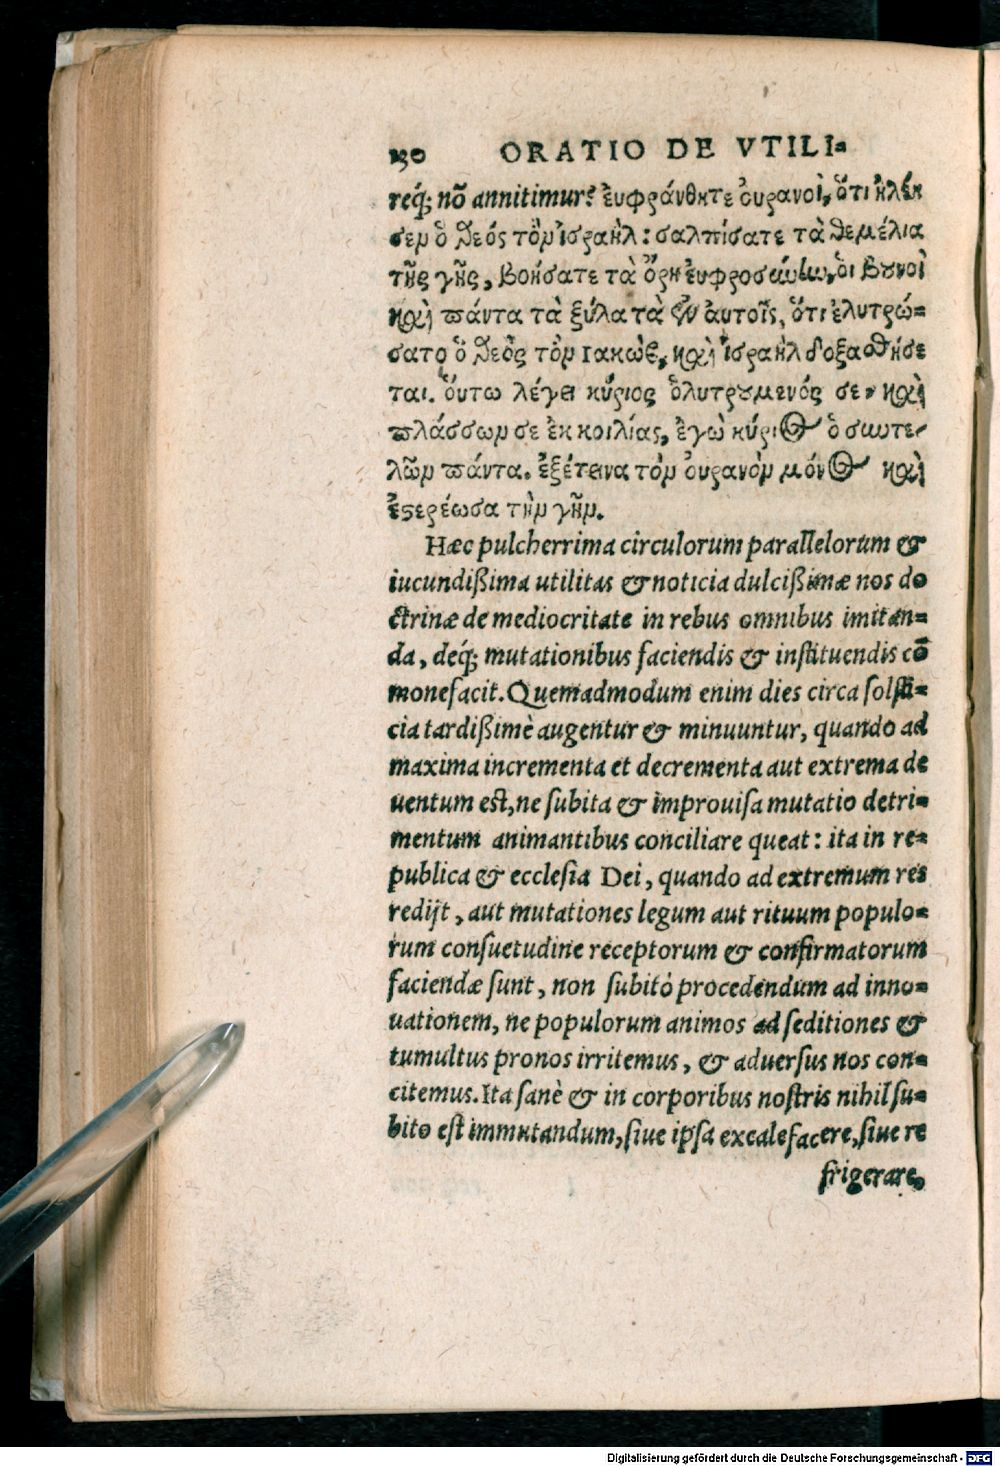 130 ORATIO DE VTILI-
req́; nō annitimur? ἐυφράνθητε ὀυρανοὶ, ὅτι ἠλέη
σεν ὁ θεός τὸν ἰσραὴλ: σαλπίσατε τὰ θεμέλια
τῆς γῆς, βοήσατε τὰ ὄρη ἐυφροσιώην, ὁι βουνοὶ
καὶ πάντα τὰ ξύλα τὰ ἐν ἀυτοῖς, ὅτι ἐλυτρώ-
σατο ὁ θεὸς τὸν ιακὼβ, καὶ ἰσραὴλ δοξασθήσε
ται. ὅυτω λέγει κύριος ὁλυτρουμενός σε, καὶ
πλάσσων σε ἐκ κοιλίας, ἐγὼ κύριος ὁ σωντε-
λῶν πάντα. ἐξέτεινα τὸν ὀυρανὸν μόνος καὶ
ἐστερέωσα τὴν γῆν.
Hæc pulcherrima circulorum parallelorum &
iucundißima utilitas & noticia dulcißimæ nos do
ctrinæ de mediocritate in rebus omnibus imitan-
da, deq́; mutationibus faciendis & instituendis cō
monefacit. Quemadmodum enim dies circa solsti-
cia tardißimè augentur & minuuntur, quando ad
maxima incrementa et decrementa aut extrema de
uentum est, ne subita & improuisa mutatio detri-
mentum animantibus conciliare queat: ita in re-
publica & ecclesia Dei, quando ad extremum res
redijt, aut mutationes legum aut rituum populo-
rum consuetudine receptorum & confirmatorum
faciendæ sunt, non subitò procedendum ad inno-
uationem, ne populorum animos ad seditiones &
tumultus pronos irritemus, & aduersus nos con-
citemus. Ita sanè & in corporibus nostris nihil su-
bito est immutandum, siue ipsa excalefacere, siue re
frigerare,
Digitalisierung gefördert durch die Deutsche Forschungsgemeinschaft - DFG